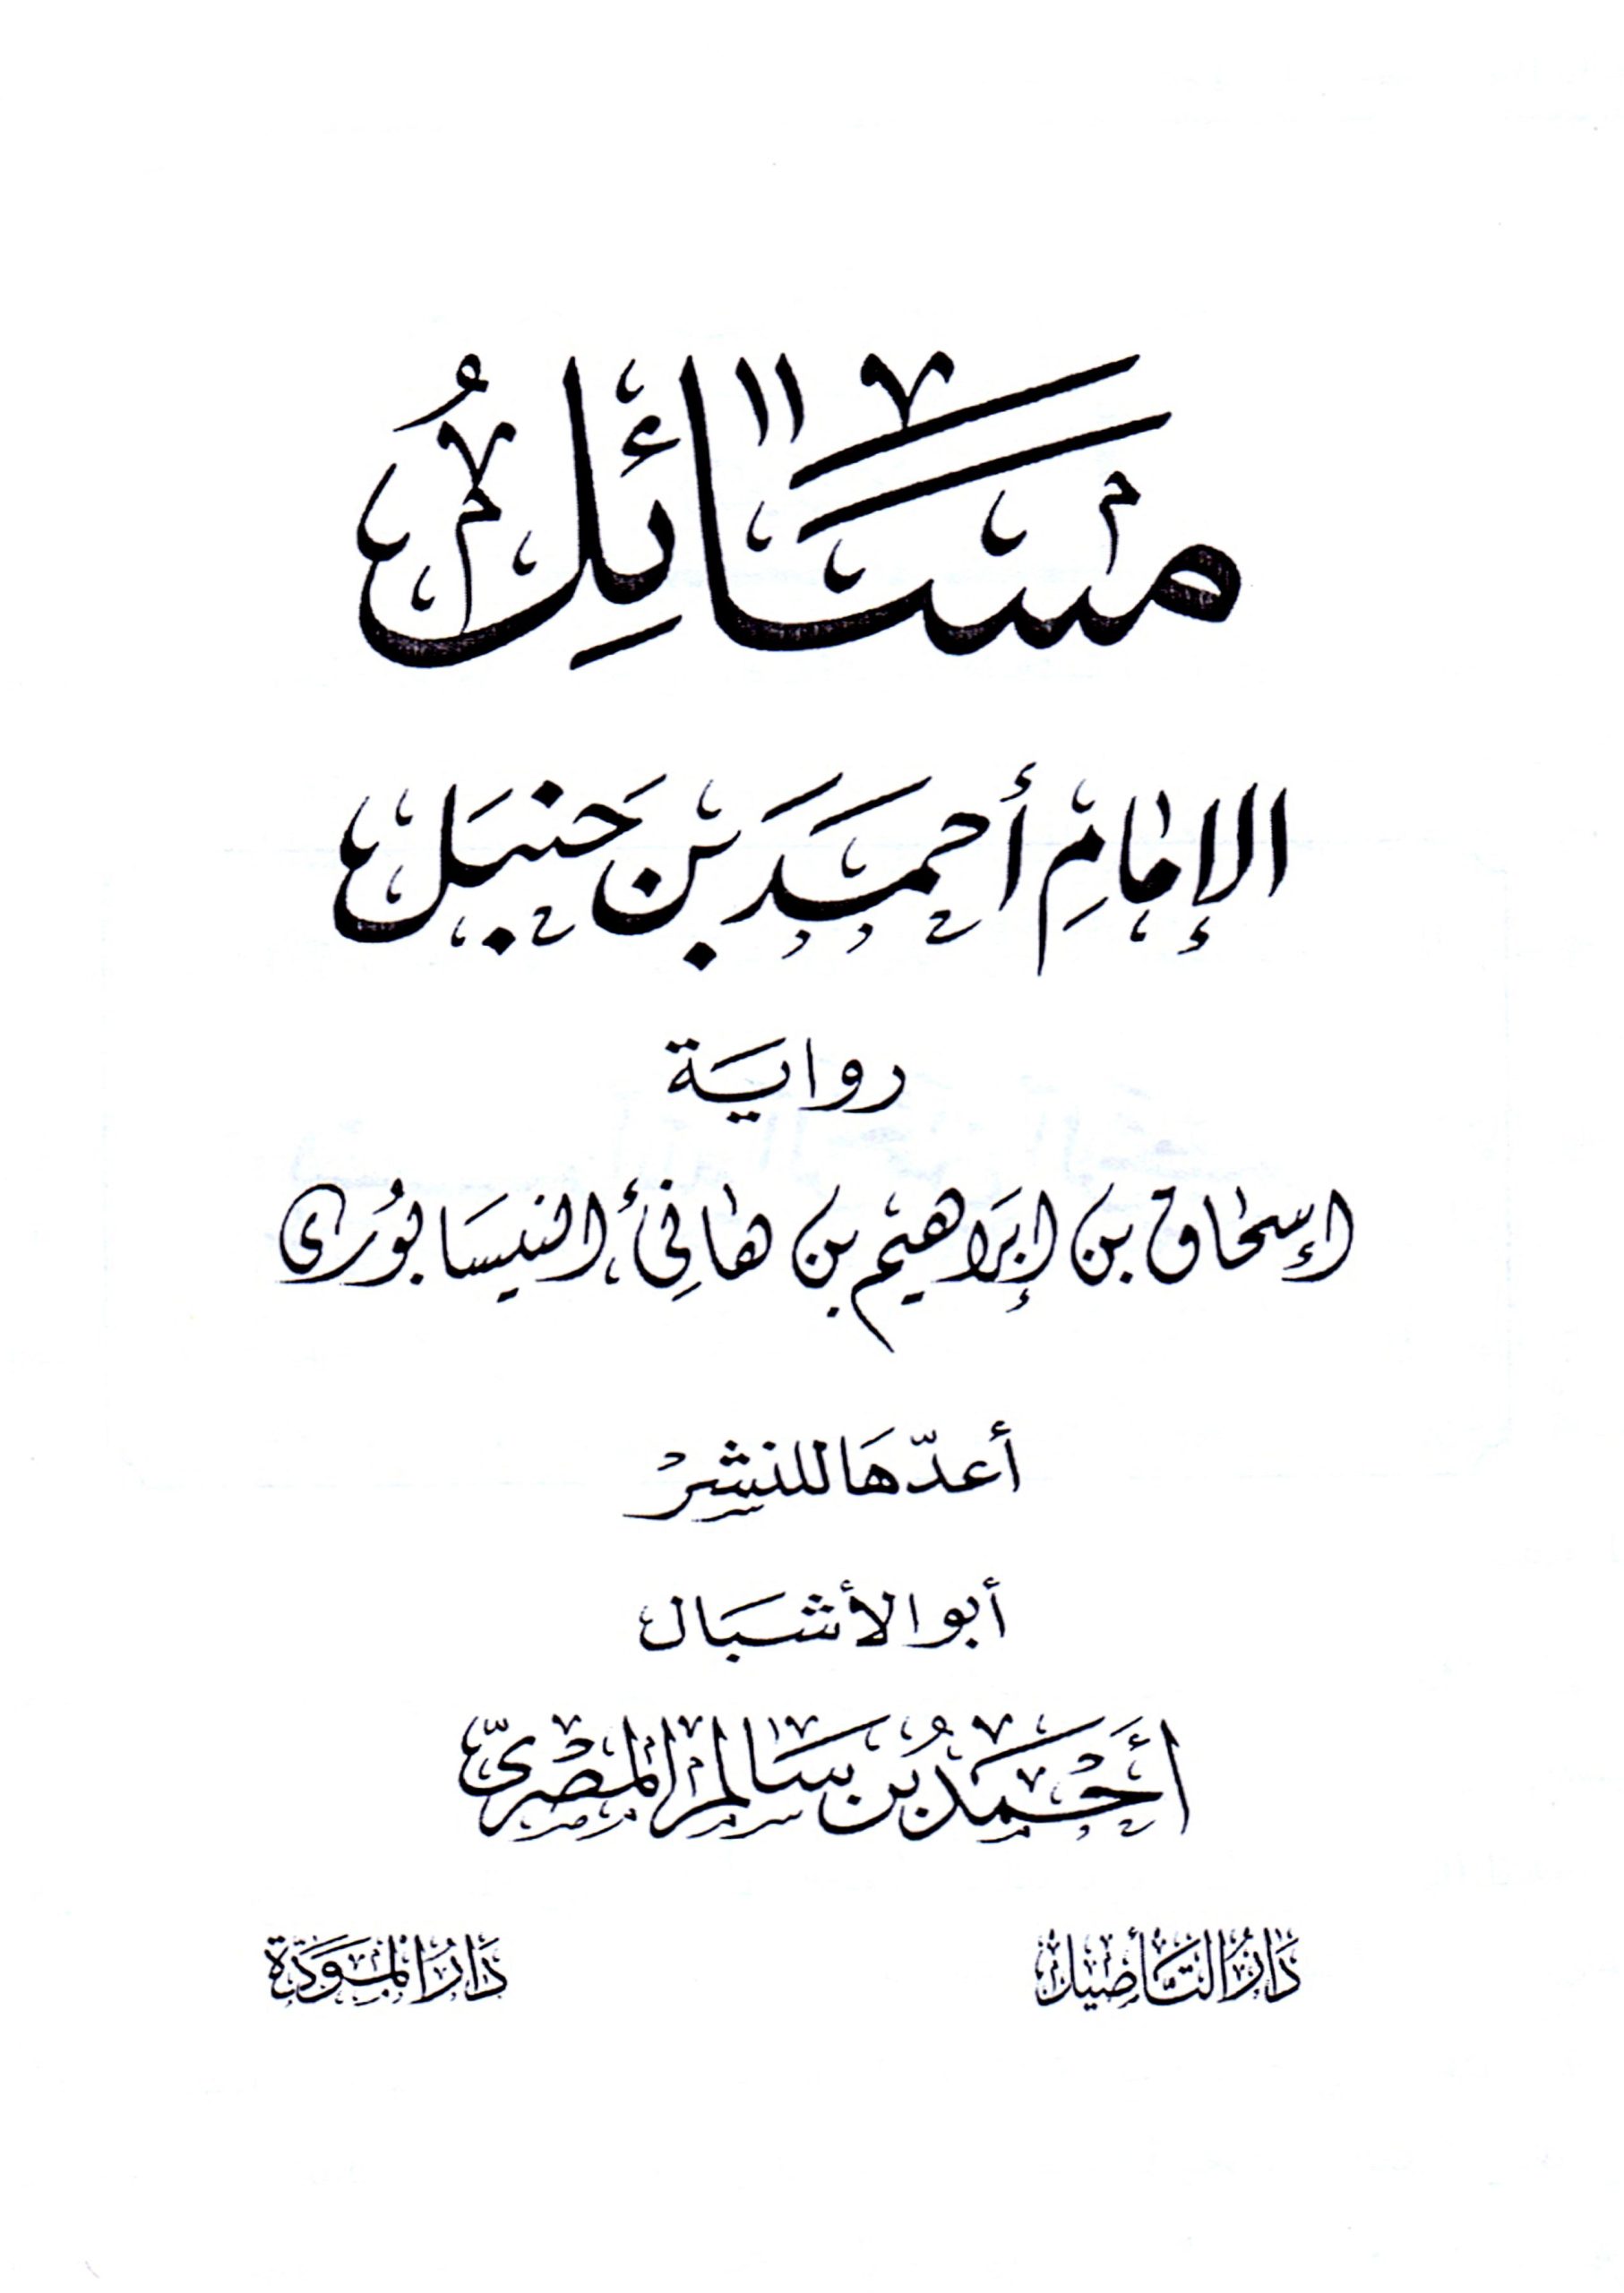 مَسَائِلُ
الإمَامِ أحمَد بْن حَنبَل
رواية
إسحاق بن إبرَاهيم بن هَانِئ النيسَابُورى
أعدّهَا للنشْر
أبو الأشبَال
أَحْمَدُ بُن سَالم المِصْرىّ
دَارُ التَّأصْيل دَارُ المَوَدَّة